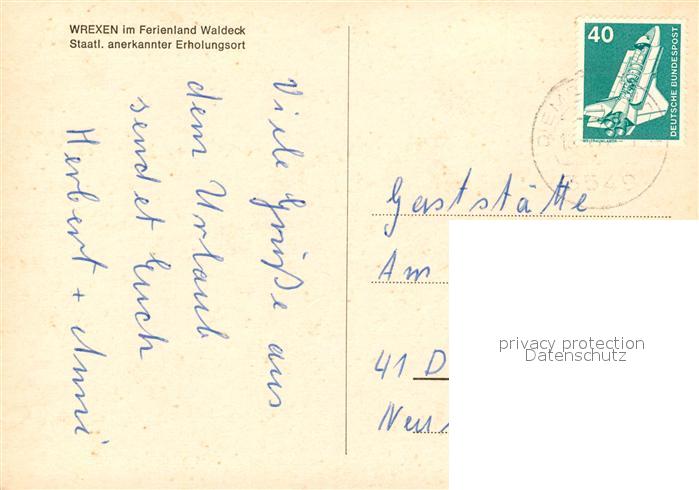 WREXEN im Ferienland Waldeck
Staatl. anerkannter Erholungsort
Viele Grüße aus
dem Urlaub
sendet Euch
Herbert + Anni
40
DEUTSCHE BUNDESPOST
WELTRAUMLABOR
DIEM
3549
Gaststätte
Am
41 D
Neu
privacy protection
Datenschutz